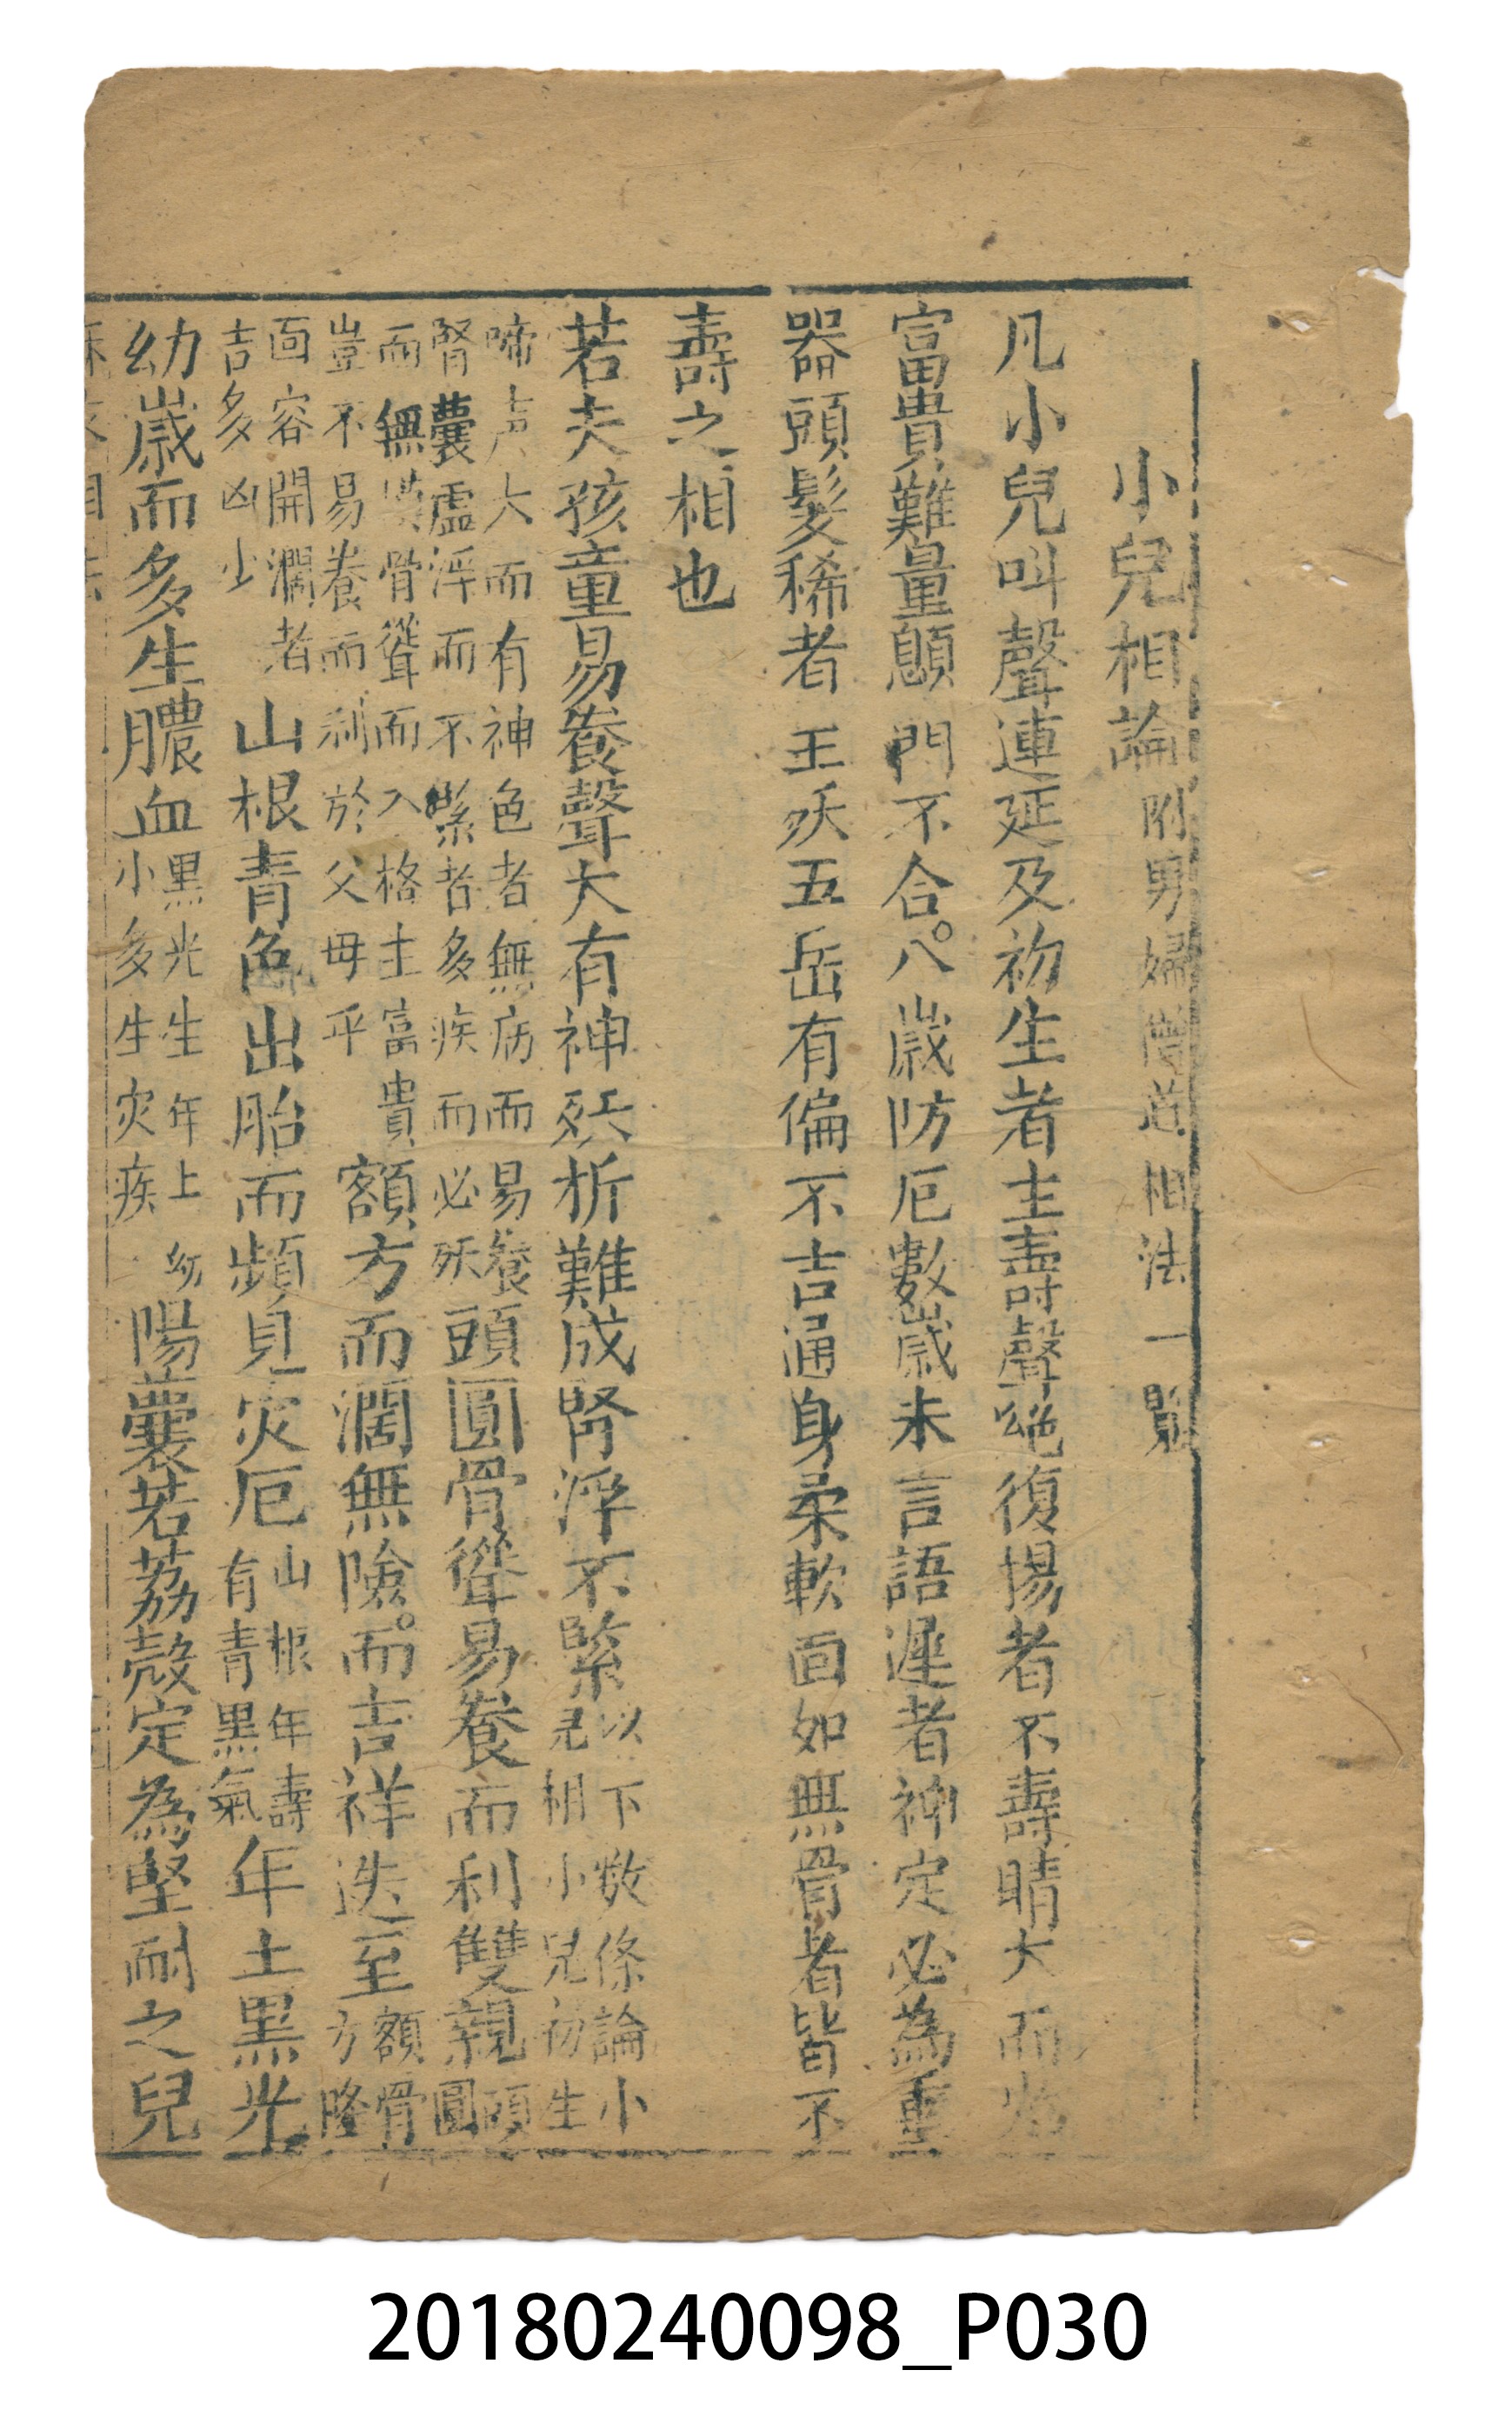 小兒相論附男婦陰道相法一覧
凡小兒叫聲連延及初生者主壽聲絶復揚者不壽睛大而光
富貴難量顖門不合八歲防厄數歲未言語遲者神定必為重
器頭髮稀者主殀五岳有偏不吉通身柔軟面如無骨者皆不
壽之相也
若夫孩童易養聲大有神殀折難成腎浮不緊以下數條論小
兒相小兒初生
啼声大而有神色者無病而易養
腎囊虛浮而不緊者多疾而必殀頭圓骨聳易養而利雙親頭
圓
而無骨聳而入格主富貴
豈不易養而利於父母乎額方而濶無險而吉祥迭至額骨
方隆
面容開濶者
吉多凶少山根青色出胎而頻見灾厄山根年壽
有青黑氣年上黑光
幼歲而多生膿血黑光生年上幼
小多生灾疾陽囊若荔殼定為堅耐之兒
20180240098_P030